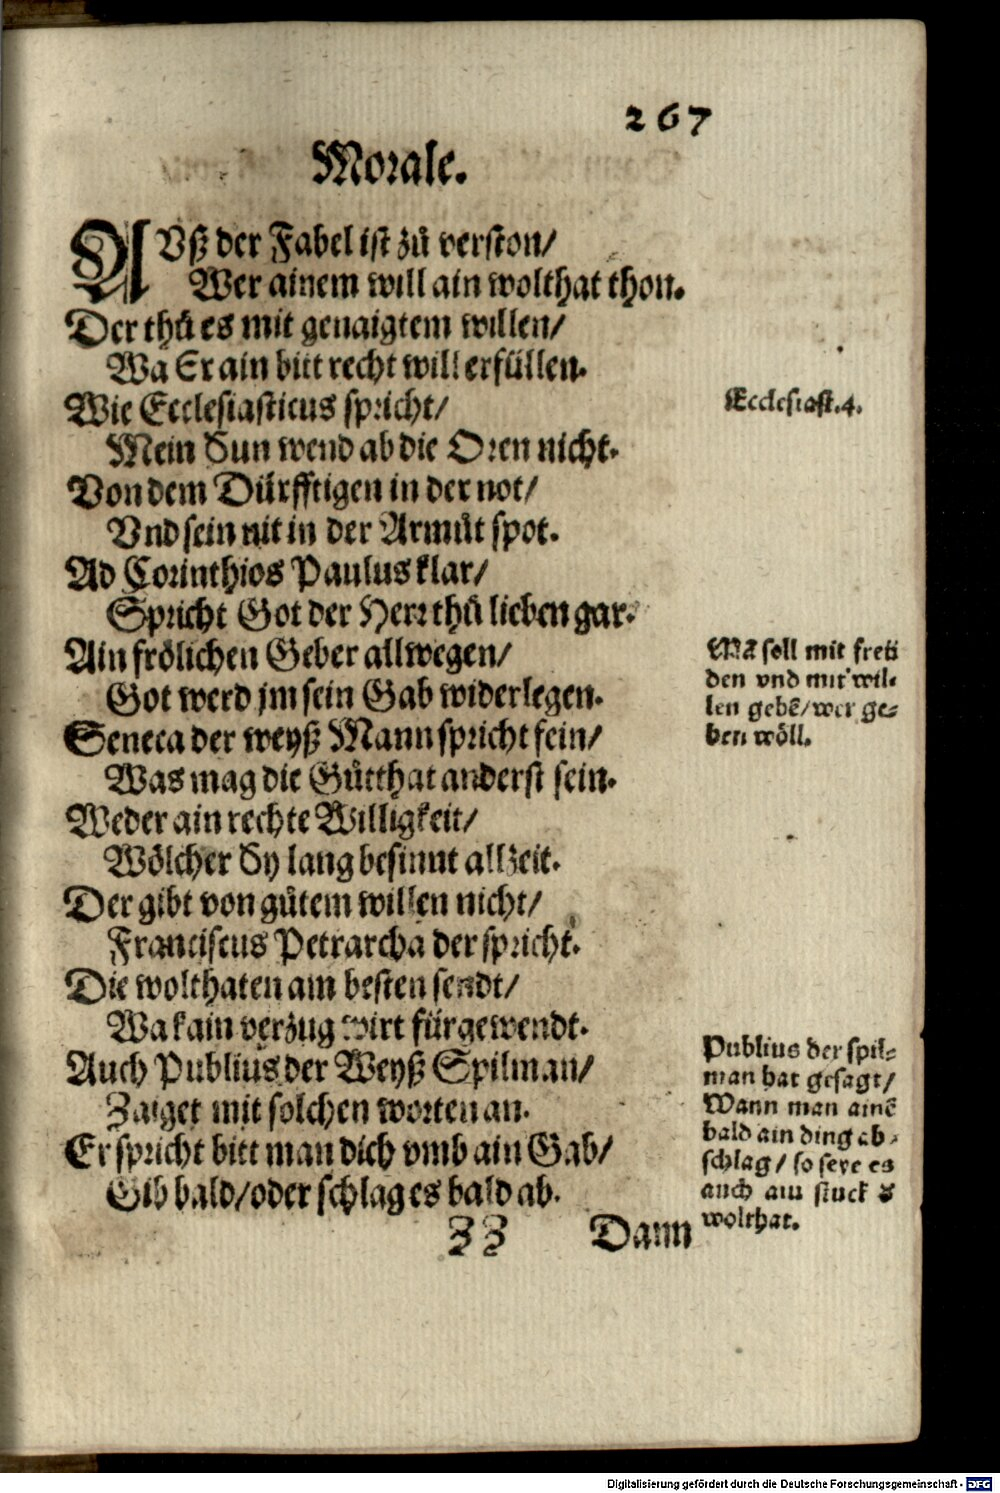 267
Morale.
AVß der Fabel ist zů verston/
Wer ainem will ain wolthat thon.
Der thů es mit genaigtem willen/
Wa Er ain bitt recht will erfüllen.
Wie Ecclesiasticus spricht/
Ecclesiast. 4.
Mein Sun wend ab die Oren nicht.
Von dem Dürfftigen in der not/
Vnd sein nit in der Armůt spot.
Ad Corinthios Paulus klar/
Spricht Got der Herr thů lieben gar.
Ain frölichen Geber allwegen/
Got werd jm sein Gab widerlegen.
Mã soll mit freü
den vnd mit wil-
len gebẽ/ wer ge-
ben wöll.
Seneca der weyß Mann spricht fein/
Was mag die Gůtthat anderst sein.
Weder ain rechte Willigkeit/
Wölcher Sy lang besinnt allzeit.
Der gibt von gůtem willen nicht/
Franciscus Petrarcha der spricht.
Die wolthaten am besten sendt/
Wa kain verzug wirt fürgewendt.
Auch Publius der Weyß Spilman/
Zaiget mit solchen worten an.
Er spricht bitt man dich vmb ain Gab/
Gib bald/ oder schlag es bald ab.
Publius der spil-
man hat gesagt/
Wann man ainẽ
bald ain ding ab-
schlag/ so seye es
auch ain stuck d
wolthat.
ZZ Dann
Digitalisierung gefördert durch die Deutsche Forschungsgemeinschaft - DFG